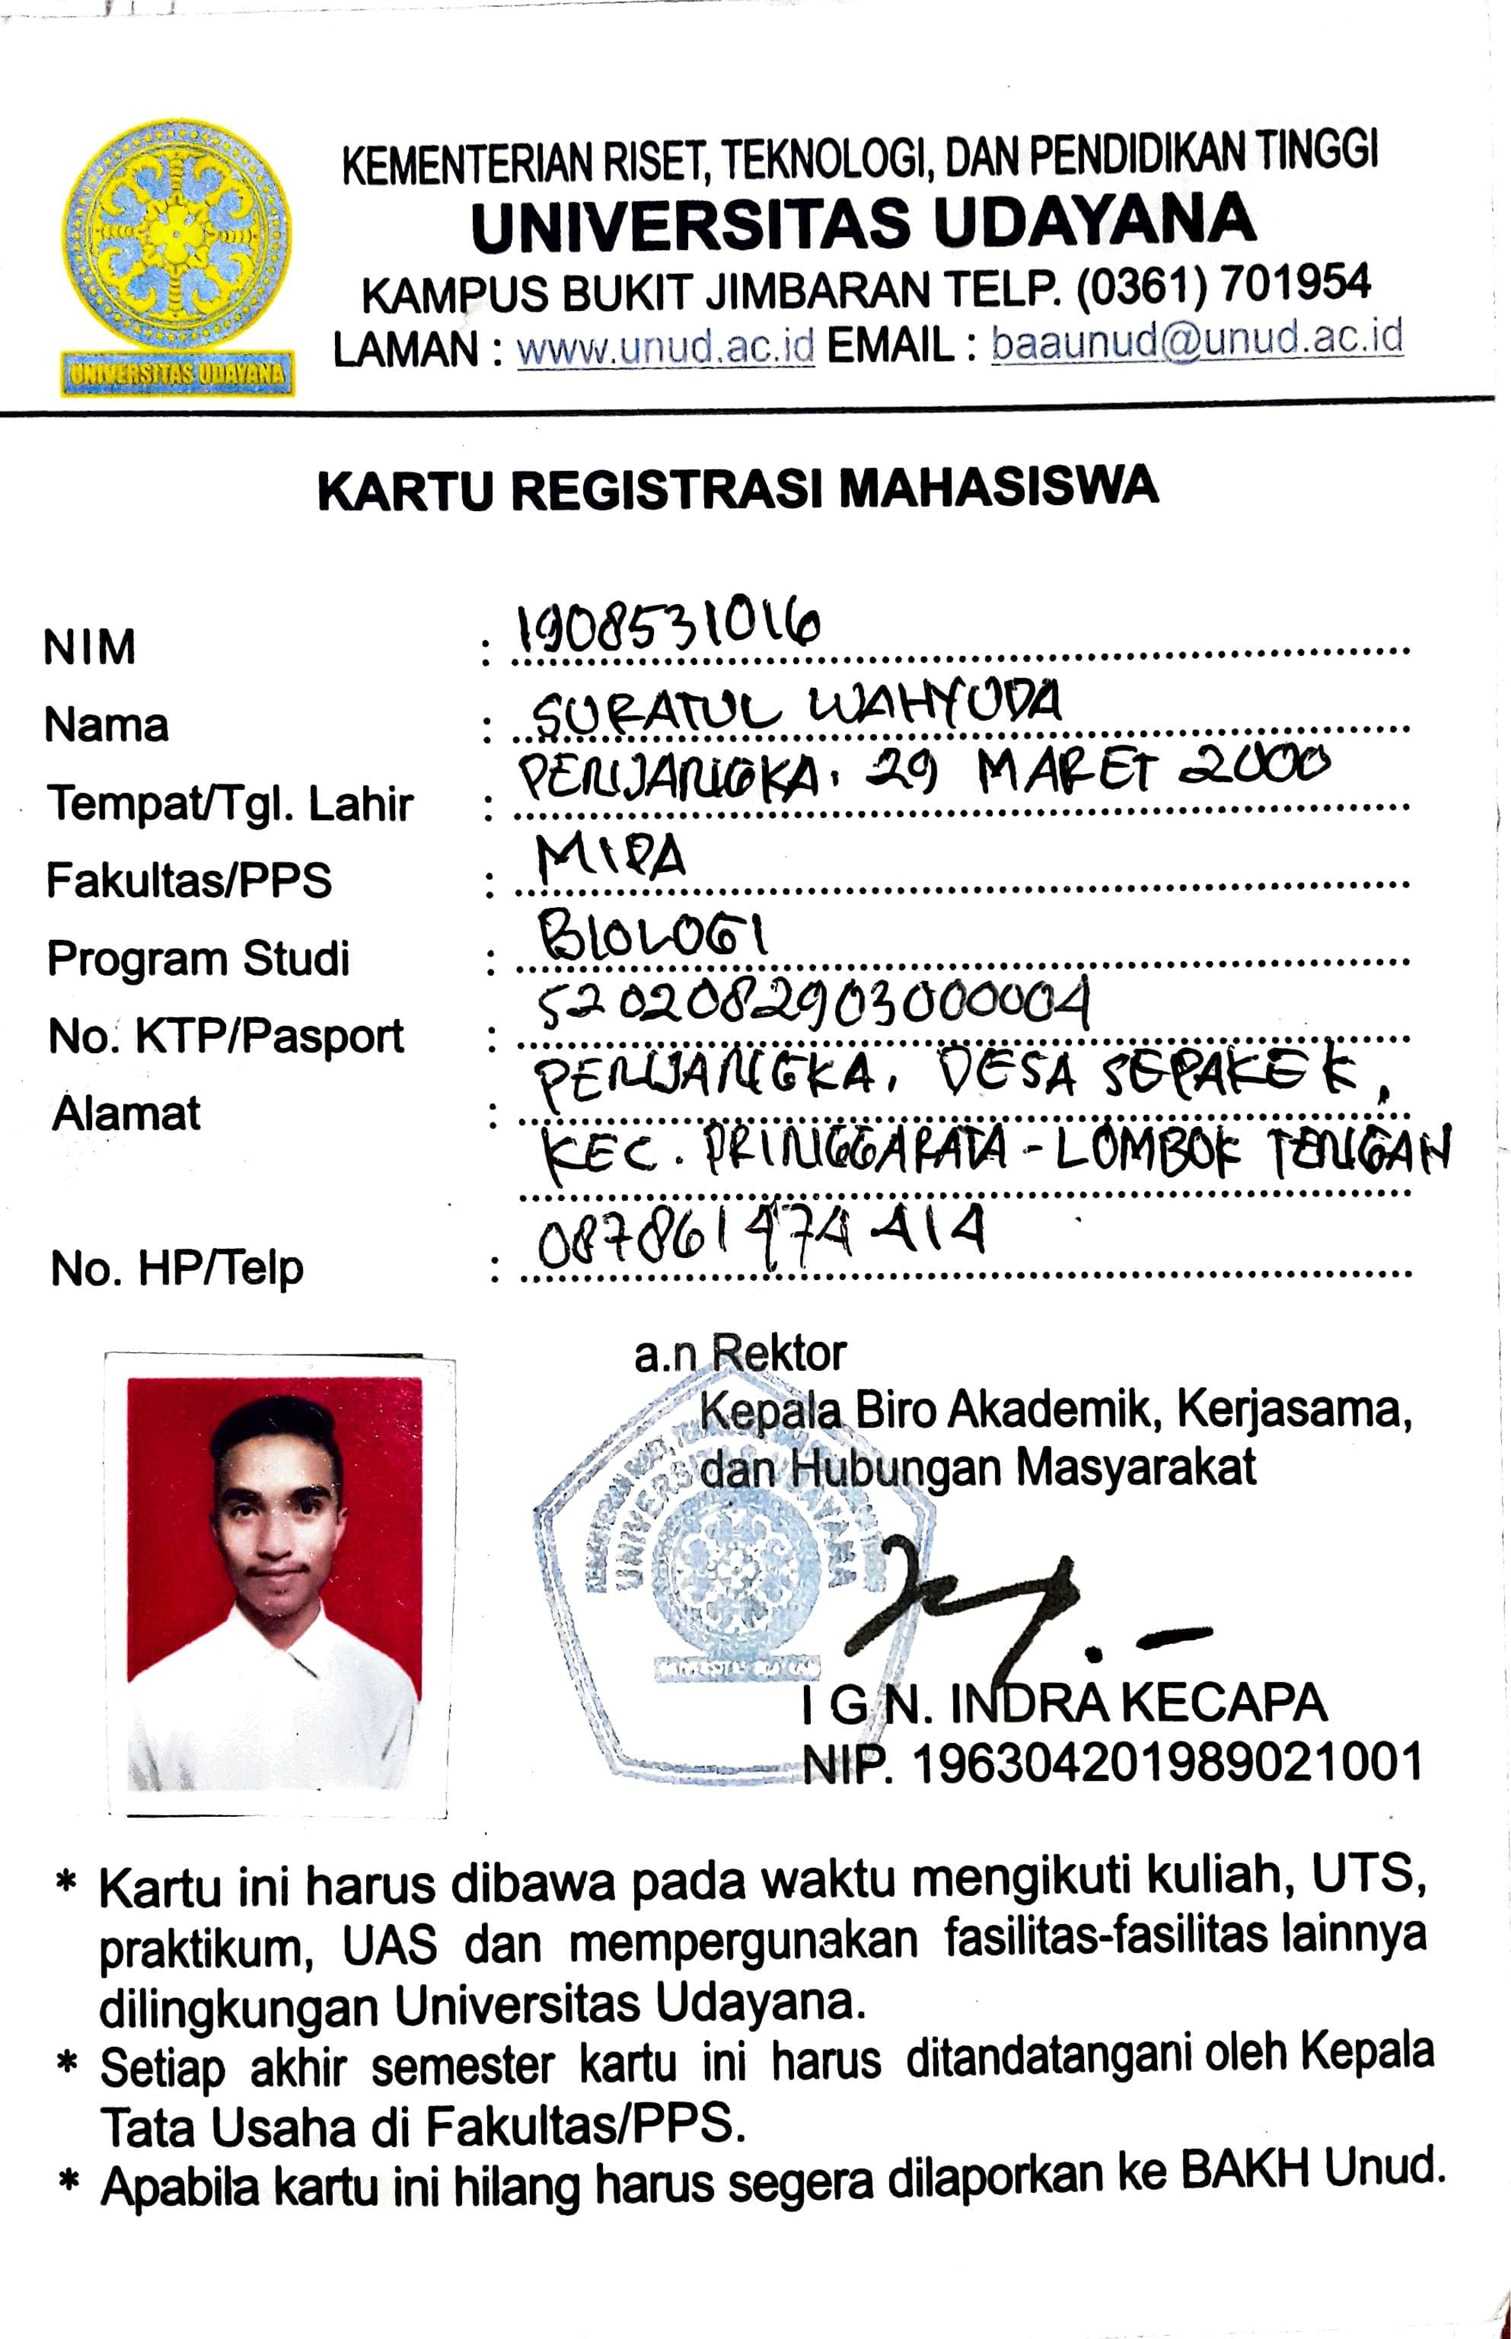 KEMENTERIAN RISET, TEKNOLOGI, DAN PENDIDIKAN TINGGI
UNIVERSITAS UDAYANA
KAMPUS BUKIT JIMBARAN TELP. (0361) 701954
LAMAN : www.unud.ac.id EMAIL : baaunud@unud.ac.id
UNIVERSITAS UDAYANA
KARTU REGISTRASI MAHASISWA
NIM : 1908531016
Nama : SURATUL WAHYUDA
Tempat/Tgl. Lahir : PENJANGKA, 29 MARET 2000
Fakultas/PPS : MIPA
Program Studi : BIOLOGI
No. KTP/Pasport : 5202082903000004
Alamat : PENJANGKA, DESA SEPAKEK,
KEC. PRINGGARATA - LOMBOK TENGAH
No. HP/Telp : 087861474414
a.n Rektor
Kepala Biro Akademik, Kerjasama,
dan Hubungan Masyarakat
UNIVERSITAS UDAYANA
I G N. INDRA KECAPA
NIP. 196304201989021001
* Kartu ini harus dibawa pada waktu mengikuti kuliah, UTS,
praktikum, UAS dan mempergunakan fasilitas-fasilitas lainnya
dilingkungan Universitas Udayana.
* Setiap akhir semester kartu ini harus ditandatangani oleh Kepala
Tata Usaha di Fakultas/PPS.
* Apabila kartu ini hilang harus segera dilaporkan ke BAKH Unud.